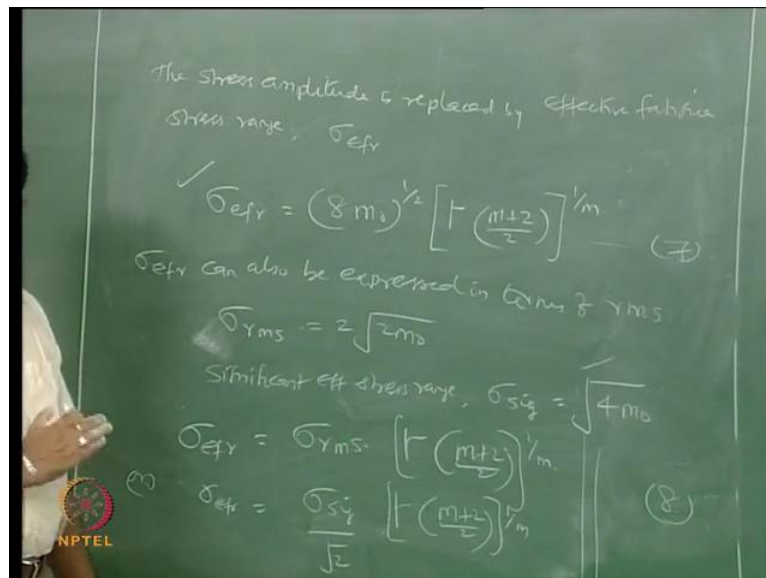 the stress amplitude is replaced by effective fatigue
stress range, σefr
✓ σefr = (8 m₀)^1/2 [Γ (m+2/2)]^1/m — (7)
σefr can also be expressed in terms of rms
σrms = 2 √2m₀
Significant eff stress range, σsig = √4m₀
σefr = σrms. [Γ (m+2/2)]^1/m.
(or) σefr = σsig/√2 [Γ (m+2/2)]^1/m (8)
NPTEL